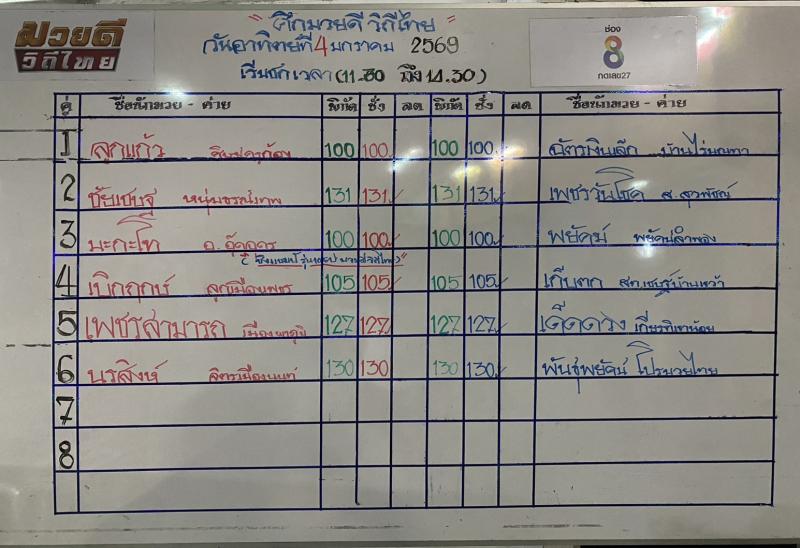 มวยดี
วิถีไทย
" ศึกมวยดี วิถีไทย "
วันอาทิตย์ที่ 4 มกราคม 2569
เริ่มชกเวลา (11.30 ถึง 14.30)
ช่อง
8
กดเลข27
คู่ ชื่อนักมวย - ค่าย พิกัด ชั่ง ลด พิกัด ชั่ง ลด ชื่อนักมวย - ค่าย
1 ลูกแก้ว 100 100 100 100 ฉัตรเงินเล็ก
2 ชัยเชษฐ หนุ่มธรณ์เทพ 131 131 131 131 เพชรวันโชค
3 มะกะโท 100 100 100 100 พยัคฆ์
4 เบิกฤกษ์ ลูกเมืองเพชร 105 105 105 105 เก็บตก
5 เพชรสามารถ 127 127 127 127 เด็ดดวง
6 นรสิงห์ จิตรเมืองนนท์ 130 130 130 130 พันธุ์พยัคฆ์ โปรมวยไทย
7
8